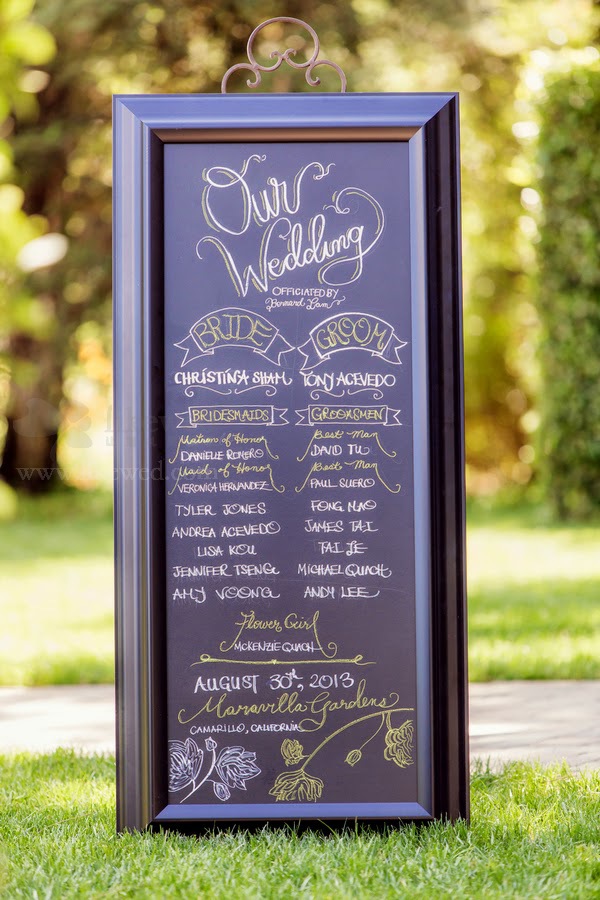 Our
Wedding
OFFICIATED BY
Bernard Lam
BRIDE GROOM
CHRISTINA SHAM TONY ACEVEDO
BRIDESMAIDS GROOMSMEN
Matron of Honor Best Man
DANIELLE ROMERO DAVID TU
Maid of Honor Best Man
VERONICA HERNANDEZ PAUL SUERO
TYLER JONES FONG MAO
ANDREA ACEVEDO JAMES TAI
LISA KOU TAI LE
JENNIFER TSENG MICHAEL QUACH
AMY VOONG ANDY LEE
Flower Girl
MCKENZIE QUACH
AUGUST 30th, 2013
Maravilla Gardens
CAMARILLO, CALIFORNIA